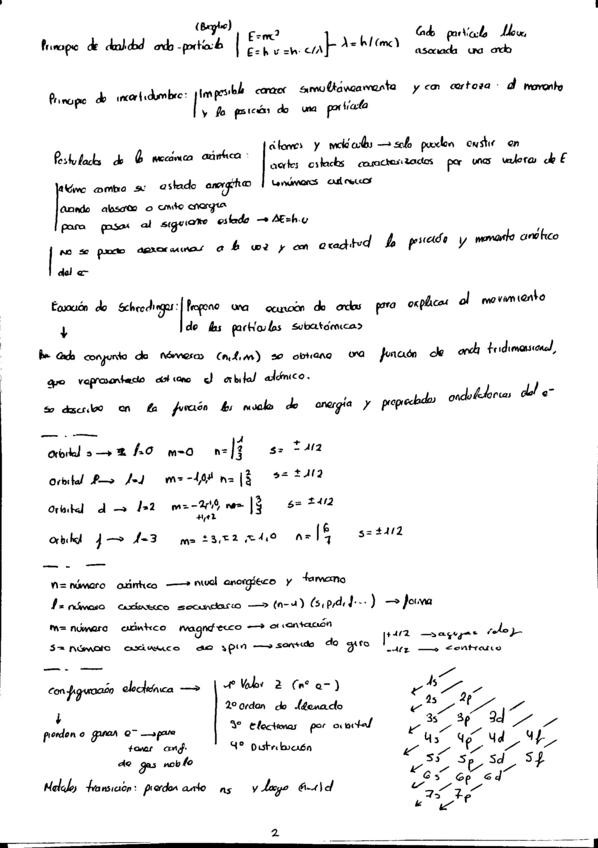 (Broglie)
Principio de dualidad onda-partícula | E=mc² E=h·υ=h·c/λ ]- λ=h/(mc) Cada partícula lleva asociada una onda
Principio de incertidumbre: | Imposible conocer simultáneamente y con certeza el momento
y la posición de una partícula
Postulados de la mecánica cuántica: | átomos y moléculas → solo pueden existir en
ciertos estados caracterizados por unos valores de E
| átomo cambia su estado energético
↳números cuánticos
cuando absorbe o emite energía
para pasar al siguiente estado → ΔE=h·υ
| No se puede determinar a la vez y con exactitud la posición y momento cinético
del e-
Ecuación de Schrodinger: | Propone una ecuación de ondas para explicar el movimiento
↓ de las partículas subatómicas
Cada conjunto de números (n,l,m) se obtiene una función de onda tridimensional,
que representado obtiene el orbital atómico.
se describe en la función los niveles de energía y propiedades ondulatorias del e-
Orbital s → l=0 m=0 n=| 1 2 3 s= ± 1/2
Orbital p → l=1 m=-1,0,+1 n=| 2 3 s= ± 1/2
Orbital d → l=2 m=-2,-1,0, +1,+2 n=| 3 4 s= ± 1/2
Orbital f → l=3 m= ±3,±2,±1,0 n=| 6 7 s=±1/2
n= número cuántico → nivel energético y tamaño
l= número cuántico secundario → (n-1) (s,p,d,f...) → forma
m= número cuántico magnético → orientación
s= número cuántico de spin → sentido de giro | +1/2 → agujas reloj
-1/2 → contrario
configuración electrónica → | 1º Valor Z (nº e-)
2º orden de llenado
3º Electrones por orbital
4º Distribución
↓
pierden o ganan e- → para
tener conf.
de gas noble
Metales transición: pierden antes ns y luego (n-1)d
1s
2s 2p
3s 3p 3d
4s 4p 4d 4f
5s 5p 5d 5f
6s 6p 6d
7s 7p
2